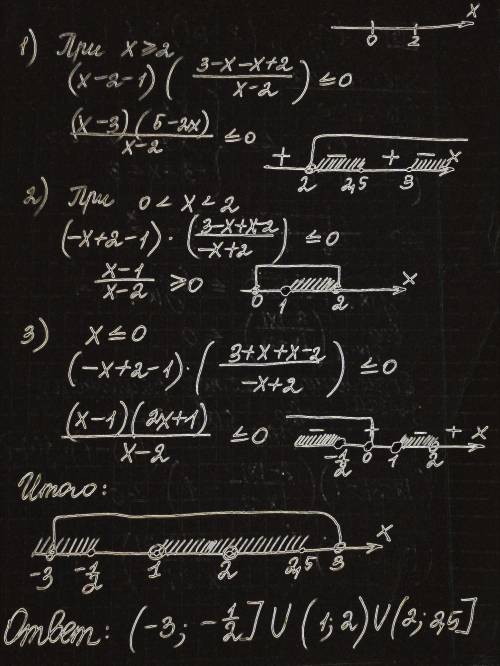 x
0 2
1) При x ≥ 2
(x-2-1) ( (3-x-x+2)/(x-2) ) ≤ 0
((x-3)(5-2x))/(x-2) ≤ 0
+ - + - x
2 2,5 3
2) При 0 < x < 2
(-x+2-1) · ( (3-x+x-2)/(-x+2) ) ≤ 0
(x-1)/(x-2) ≥ 0
x
0 1 2
3) x ≤ 0
(-x+2-1) · ( (3+x+x-2)/(-x+2) ) ≤ 0
((x-1)(2x+1))/(x-2) ≤ 0
- + - + x
-1/2 0 1 2
Итого:
x
-3 -1/2 1 2 2,5 3
Ответ: (-3; -1/2] U (1; 2) U (2; 2,5]